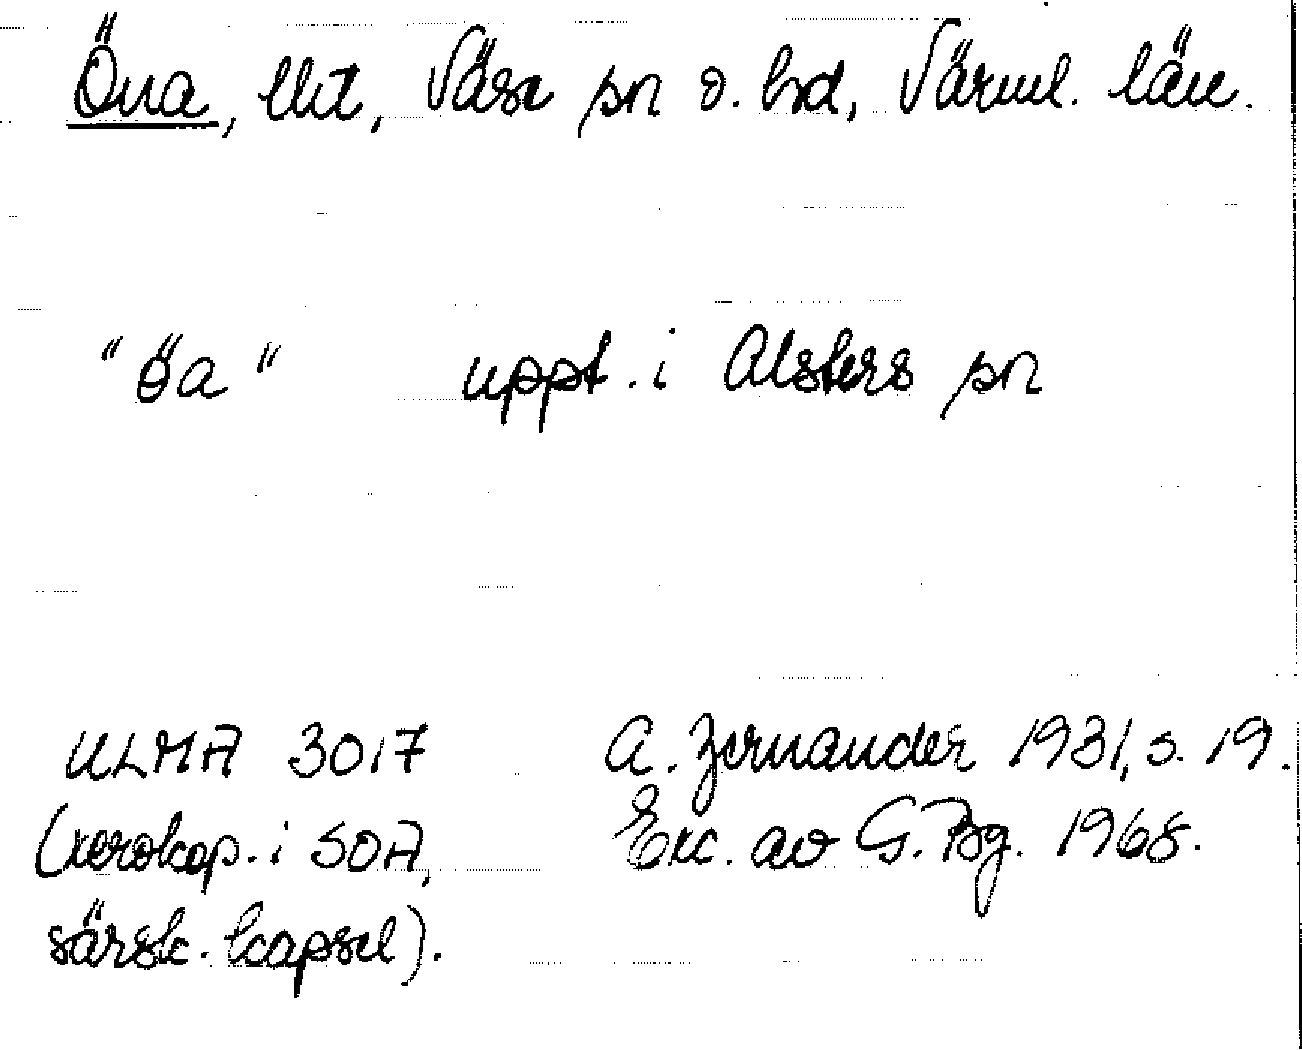 Öna, llkt, Väse sn o. hd, Värml. län.
"öa" uppt. i Alsters sn
ULMA 3017 A. Zernander 1931, s. 19.
(xerokop. i SOA, Exc. av G. Bg. 1968.
särsk. kapsel).